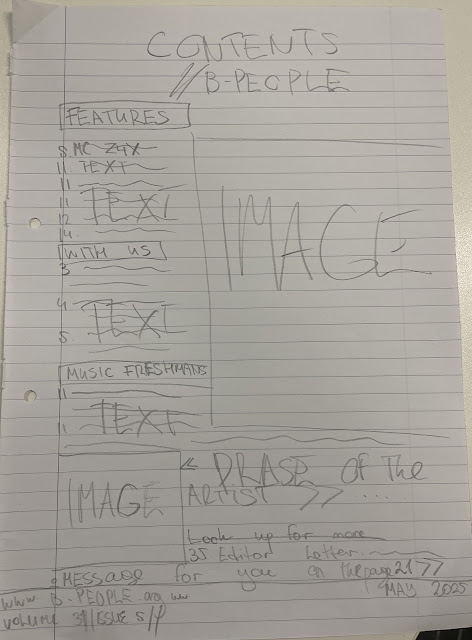 CONTENTS
// B-PEOPLE
FEATURES
8 MC ZAX
11 TEXT
11
11 TEXT
12
14
WITH US
3
4 TEXT
5
IMAGE
MUSIC FRESHMANS
11
11 TEXT
IMAGE
< PRASE OF The
ARTIST >> ....
Look up for more
35 Editor Letter
MESSage for you on the page 21 77
MAY 2025
www B-PEOPLE.org
VOLUME 31/ISSUE 5/